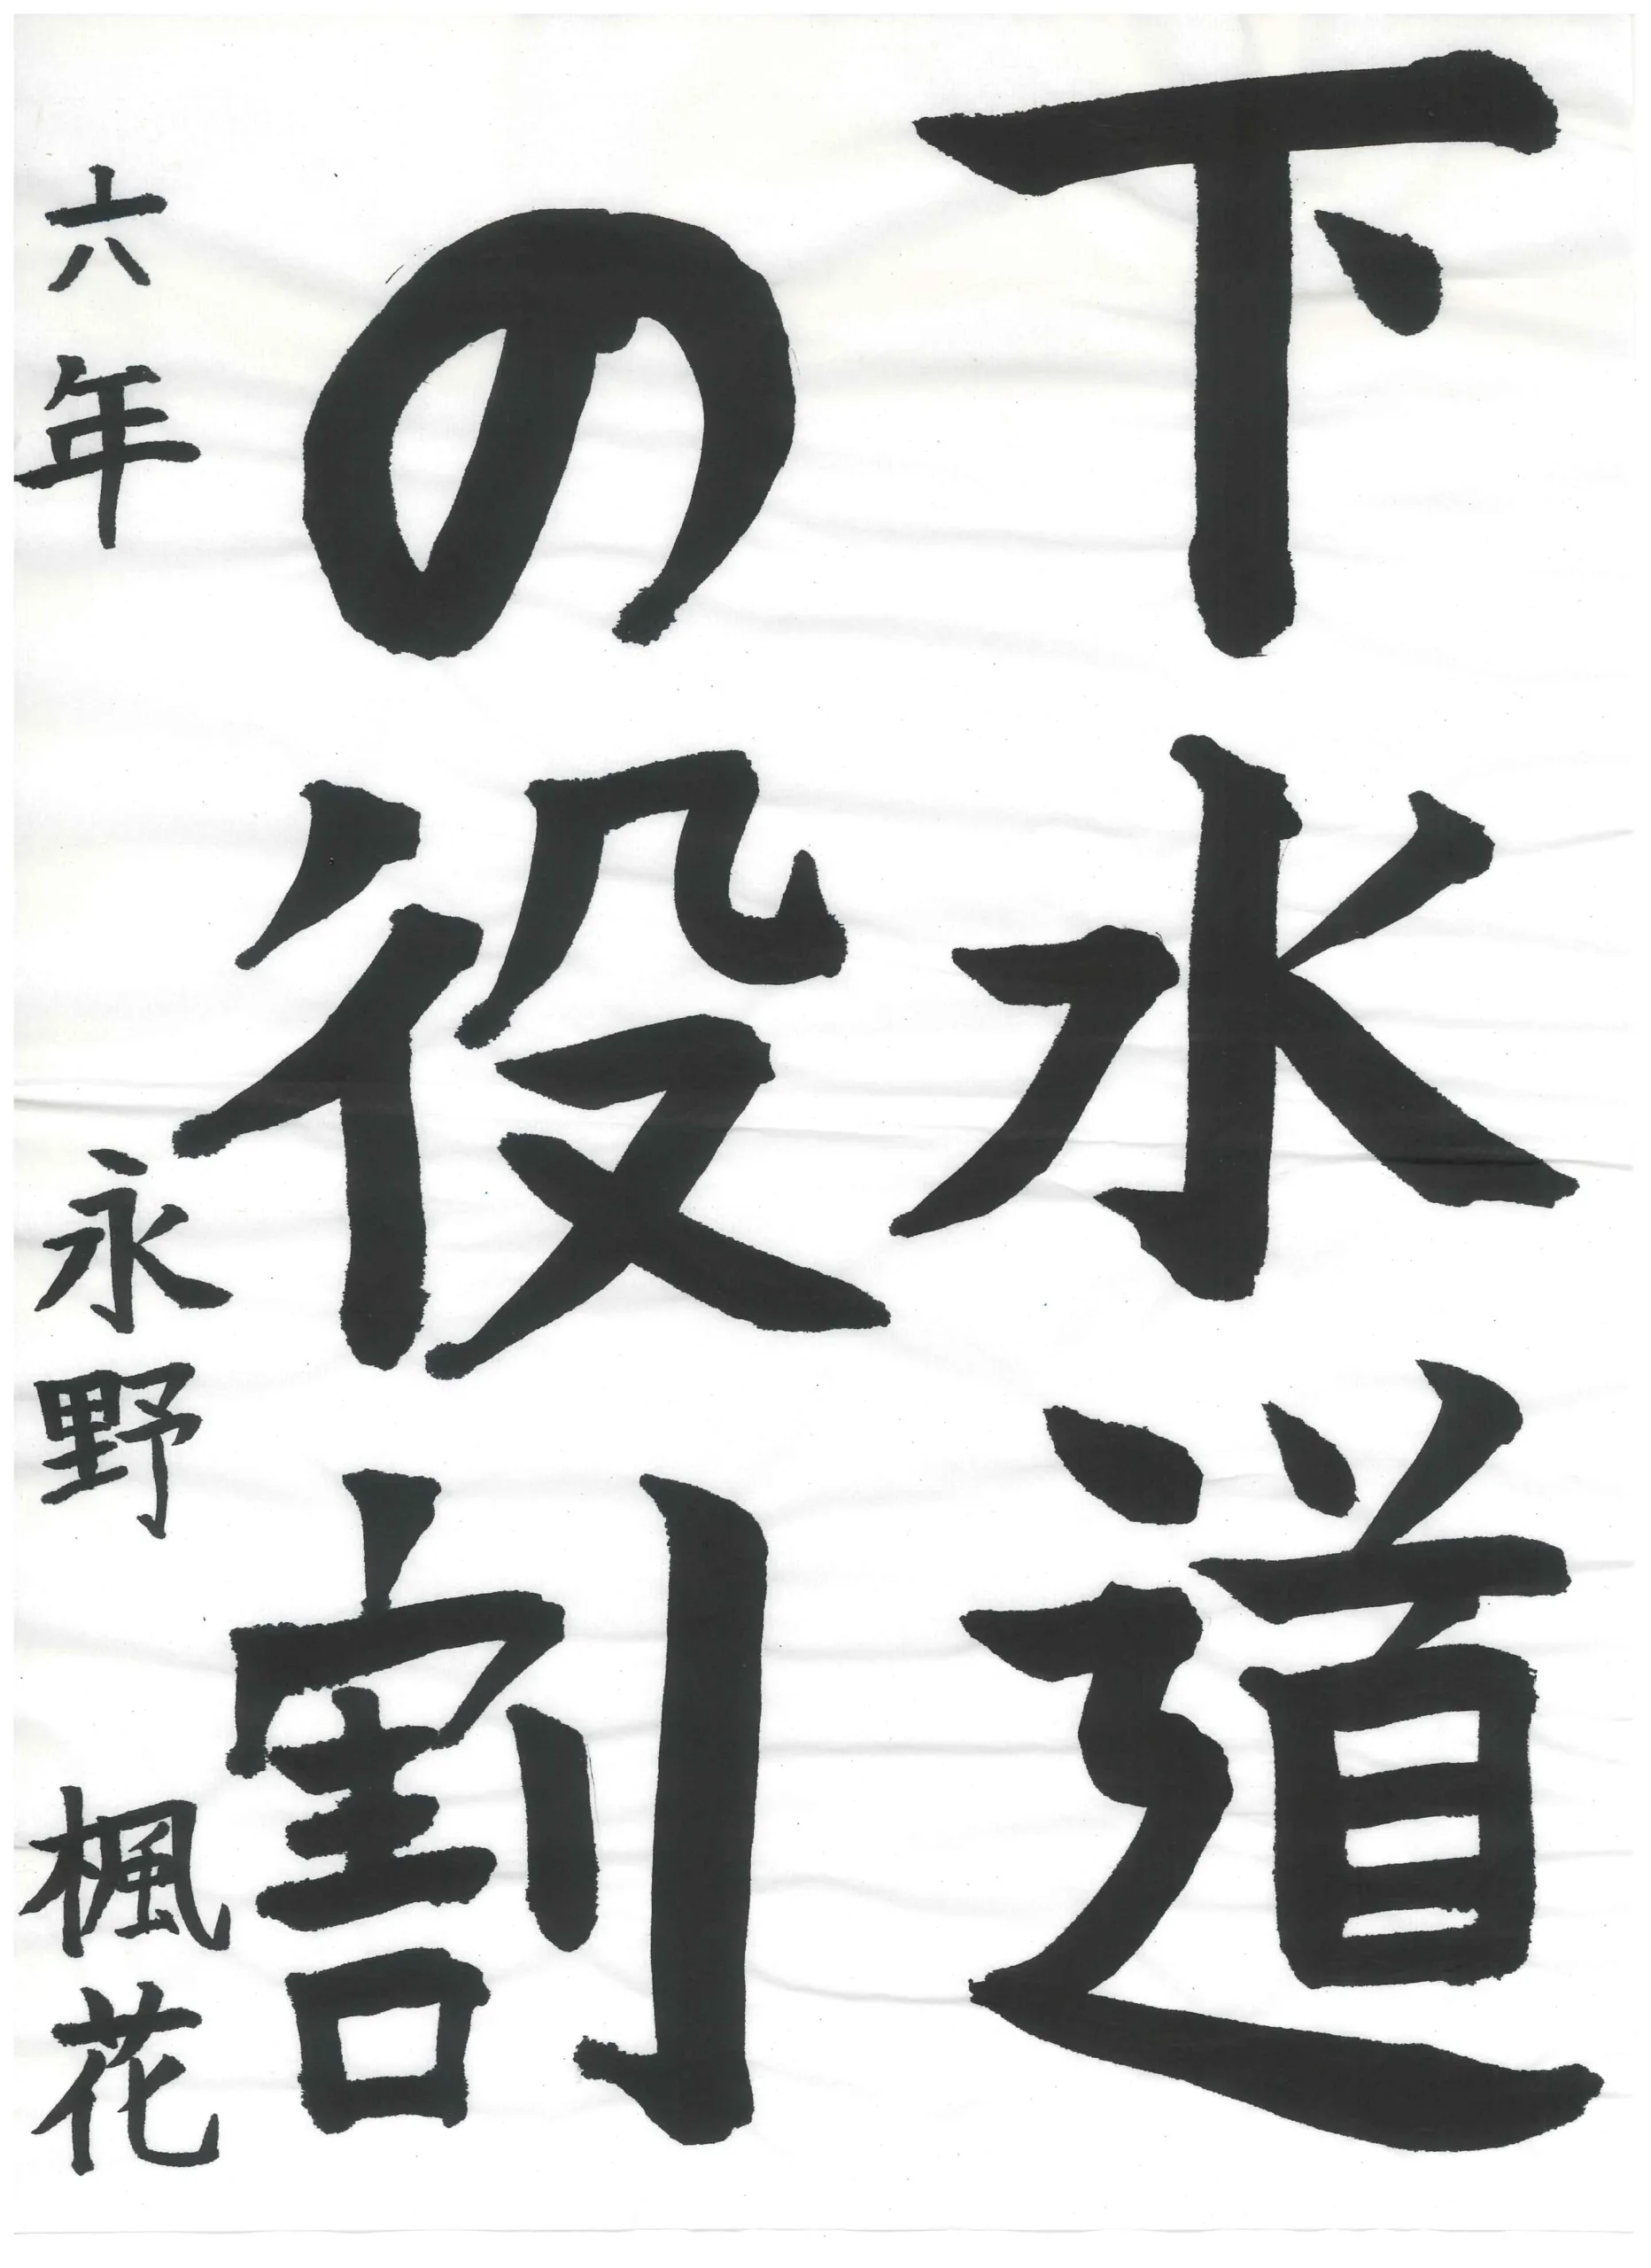 下水道
の役割
六年 永野 楓花